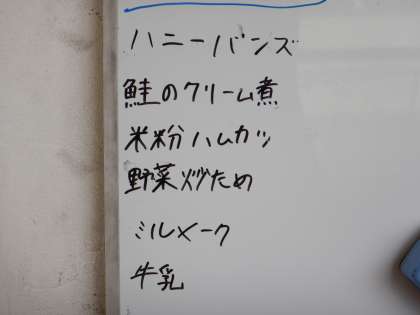 ハニーバンズ
鮭のクリーム煮
米粉ハムカツ
野菜炒ため
ミルメーク
牛乳